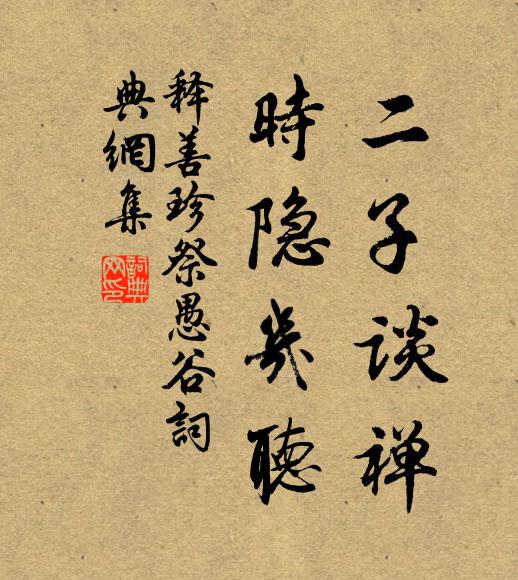 二子谈禅
時隐几聽
释善珍祭愚谷詞
典網集
詞典網印